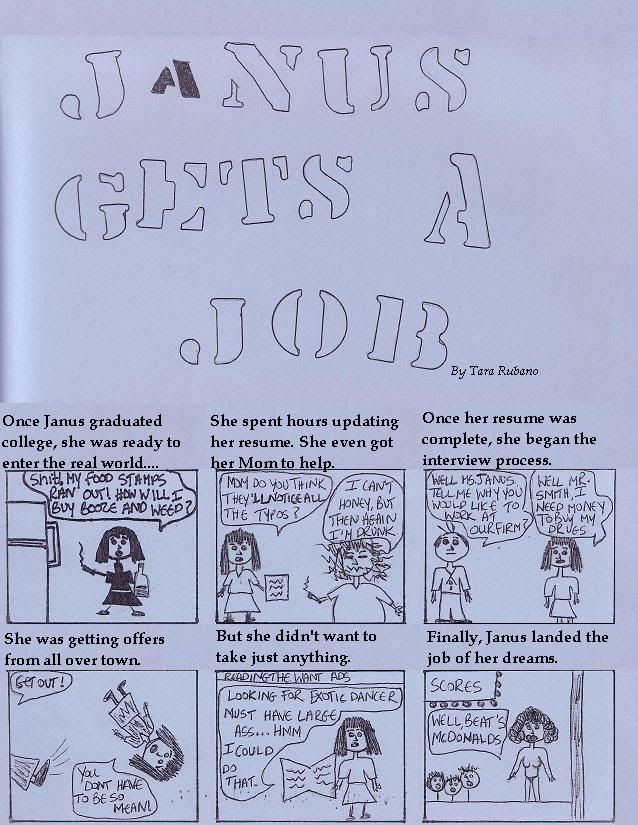 JANUS
GETS A
JOB
By Tara Rubano
Once Janus graduated
college, she was ready to
enter the real world....
SHIT! MY FOOD STAMPS
RAN OUT! HOW WILL I
BUY BOOZE AND WEED?
She spent hours updating
her resume. She even got
her Mom to help.
MOM DO YOU THINK
THEY'LL NOTICE ALL
THE TYPOS?
I CAN'T
HONEY, BUT
THEN AGAIN
I'M DRUNK
Once her resume was
complete, she began the
interview process.
WELL MS. JANUS,
TELL ME WHY YOU
WOULD LIKE TO
WORK AT
OUR FIRM?
WELL MR.
SMITH, I
NEED MONEY
TO BUY MY
DRUGS
She was getting offers
from all over town.
GET OUT!
YOU
DONT HAVE
TO BE SO
MEAN!
But she didn't want to
take just anything.
READING THE WANT ADS
LOOKING FOR EXOTIC DANCER
MUST HAVE LARGE
ASS... HMM
I COULD
DO
THAT..
Finally, Janus landed the
job of her dreams.
SCORES
WELL, BEAT'S
MCDONALDS